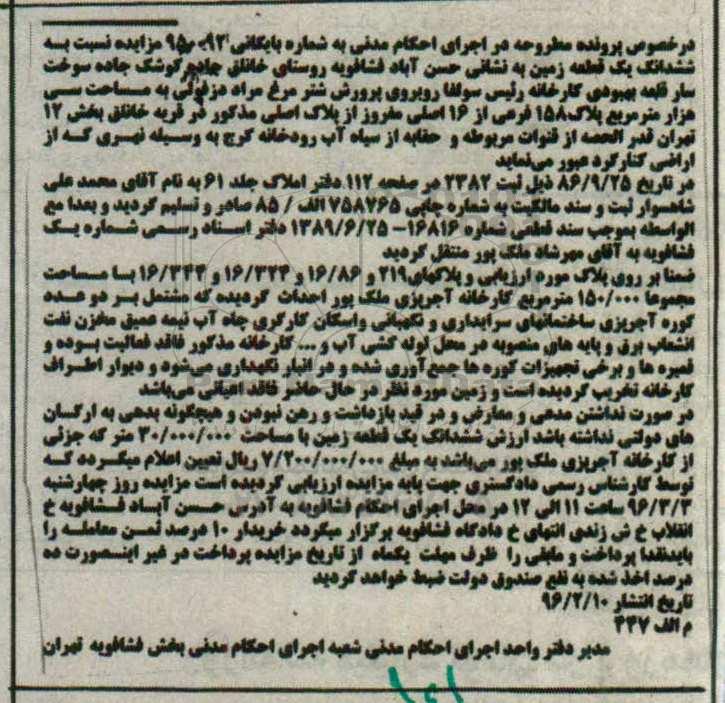 درخصوص پرونده مطروحه در اجرای احکام مدنی به شماره بایگانی ۹۲-۹۵۰ مزایده نسبت به
ششدانگ یک قطعه زمین به نشانی حسن آباد فشافویه روستای خانلق جاده کوشک جاده سوخت
سار قلعه بهبودی کارخانه رئیس سولفا روبروی پرورش شتر مرغ مراد دزفولی به مساحت سی
هزار مترمربع پلاک ۱۵۸ فرعی از ۱۶ اصلی مفروز از پلاک اصلی مذکور در قریه خانلق بخش ۱۲
تهران قدر الحصه از قنوات مربوطه و حقابه از سیاه آب رودخانه کرج به وسیله نهری که از
اراضی کنارگرد عبور می‌نماید
در تاریخ ۸۶/۹/۲۵ ذیل ثبت ۲۳۸۲ در صفحه ۱۱۲ دفتر املاک جلد ۶۱ به نام آقای محمد علی
شاهسوار ثبت و سند مالکیت به شماره چاپی ۷۵۸۷۶۵ الف / ۸۵ صادر و تسلیم گردید و بعدا مع
الواسطه بموجب سند قطعی شماره ۱۶۸۱۶- ۱۳۸۹/۶/۲۵ دفتر اسناد رسمی شماره یک
فشافویه به آقای مهرشاد ملک پور منتقل گردید
ضمنا بر روی پلاک مورد ارزیابی و پلاکهای ۲۱۹ و ۱۶/۸۶ و ۱۶/۳۲۴ و ۱۶/۳۴۴ با مساحت
مجموعا ۱۵۰/۰۰۰ مترمربع کارخانه آجرپزی ملک پور احداث گردیده که مشتمل بر دو عدد
کوره آجرپزی ساختمانهای سرایداری و نگهبانی واسکان کارگری چاه آب نیمه عمیق مخزن نفت
انشعاب برق و پایه های منصوبه در محل لوله کشی آب و ... کارخانه مذکور فاقد فعالیت بوده و
قمیره ها و برخی تجهیزات کوره ها جمع‌آوری شده و در انبار نگهداری می‌شود و دیوار اطراف
کارخانه تخریب گردیده است و زمین مورد نظر در حال حاضر فاقد اعیانی می‌باشد
در صورت نداشتن مدعی و معارض و در قید بازداشت و رهن نبودن و هیچگونه بدهی به ارگان
های دولتی نداشته باشد ارزش ششدانگ یک قطعه زمین با مساحت ۳۰/۰۰۰/۰۰۰ متر که جزئی
از کارخانه آجرپزی ملک پور می‌باشد به مبلغ ۷/۲۰۰/۰۰۰/۰۰۰ ریال تعیین اعلام میگردد که
توسط کارشناس رسمی دادگستری جهت پایه مزایده ارزیابی گردیده است مزایده روز چهارشنبه
۹۶/۳/۳ ساعت ۱۱ الی ۱۲ در محل اجرای احکام فشافویه به آدرس حسن آباد فشافویه خ
انقلاب خ ش زندی انتهای خ دادگاه فشافویه برگزار میگردد خریدار ۱۰ درصد ثمن معامله را
بایدنقدا پرداخت و مابقی را ظرف مهلت یکماه از تاریخ مزایده پرداخت در غیر اینصورت ده
درصد اخذ شده به نفع صندوق دولت ضبط خواهد گردید
تاریخ انتشار ۹۶/۲/۱۰
م الف ۴۴۷
مدیر دفتر واحد اجرای احکام مدنی شعبه اجرای احکام مدنی بخش فشافویه تهران